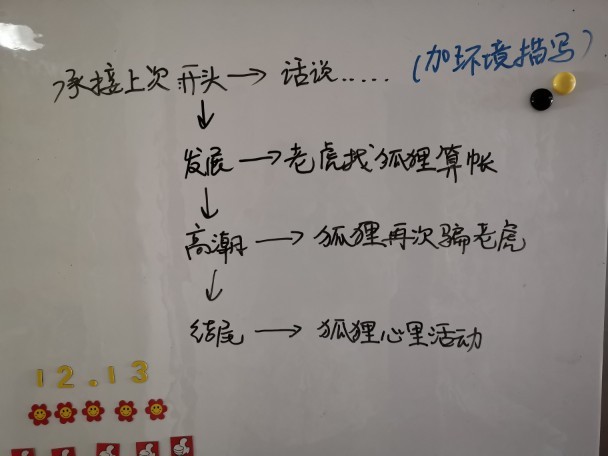 承接上次 开头→话说..... (加环境描写)
↓
发展→老虎找狐狸算帐
↓
高潮→狐狸再次骗老虎
↓
结尾→狐狸心里活动
12.13